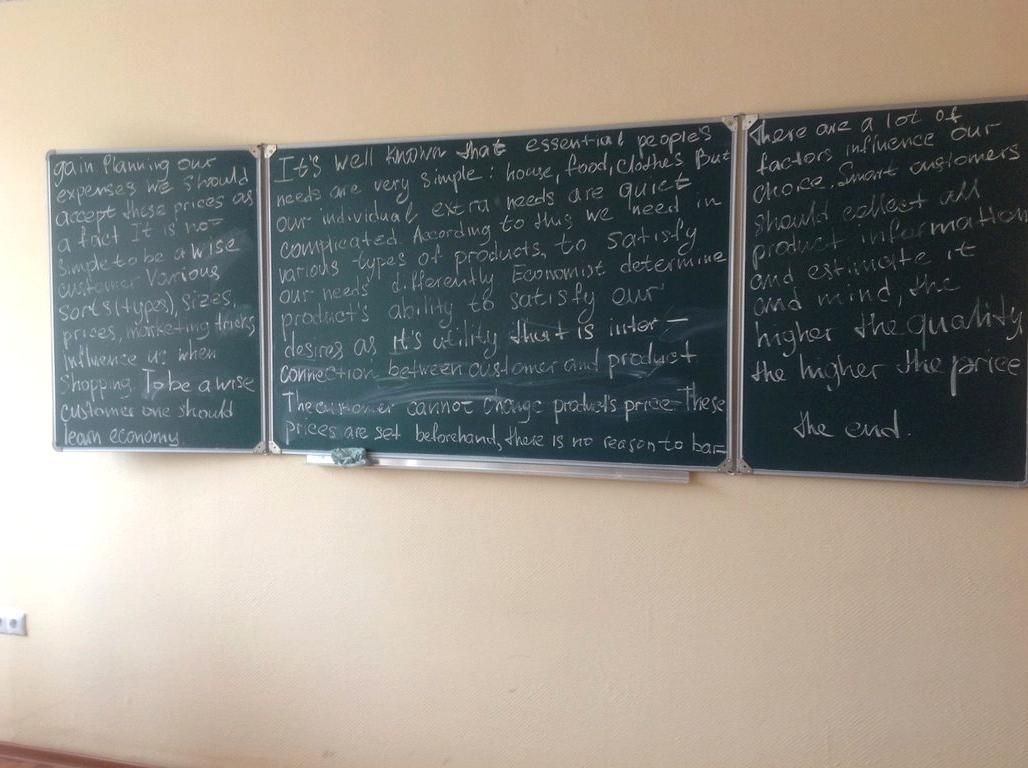 It's well known that essential peoples
needs are very simple: house, food, clothes But
our individual extra needs are quiet
complicated. According to this we need in
various types of products, to satisfy
our needs differently Economist determine
product's ability to satisfy our
desires as It's utility that is inter-
connection between customer and product
The customer cannot change product's price These
prices are set beforehand, there is no reason to bar=
gain Planning our
expenses we should
accept these prices as
a fact It is not
simple to be a wise
customer Various
sorts (types), sizes,
prices, marketing tricks
influence us when
shopping. To be a wise
customer one should
learn economy.
there are a lot of
factors influence our
choice. Smart customers
should collect all
product information
and estimate it
and mind, the
higher the quality
the higher the price
the end.